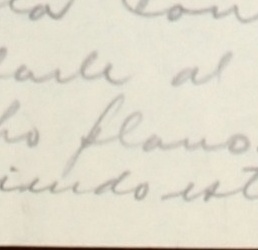 la con
darle al
ho plano
iendo est